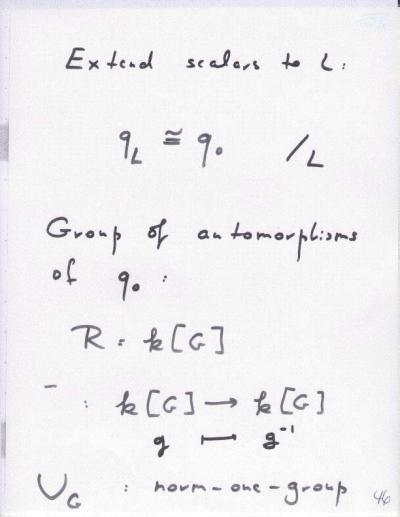 Extend scalars to L:
q_L ≅ q_0 /L
Group of automorphisms
of q_0 :
R = k[G]
‾ : k[G] → k[G]
g ↦ g⁻¹
U_G : norm-one-group
46